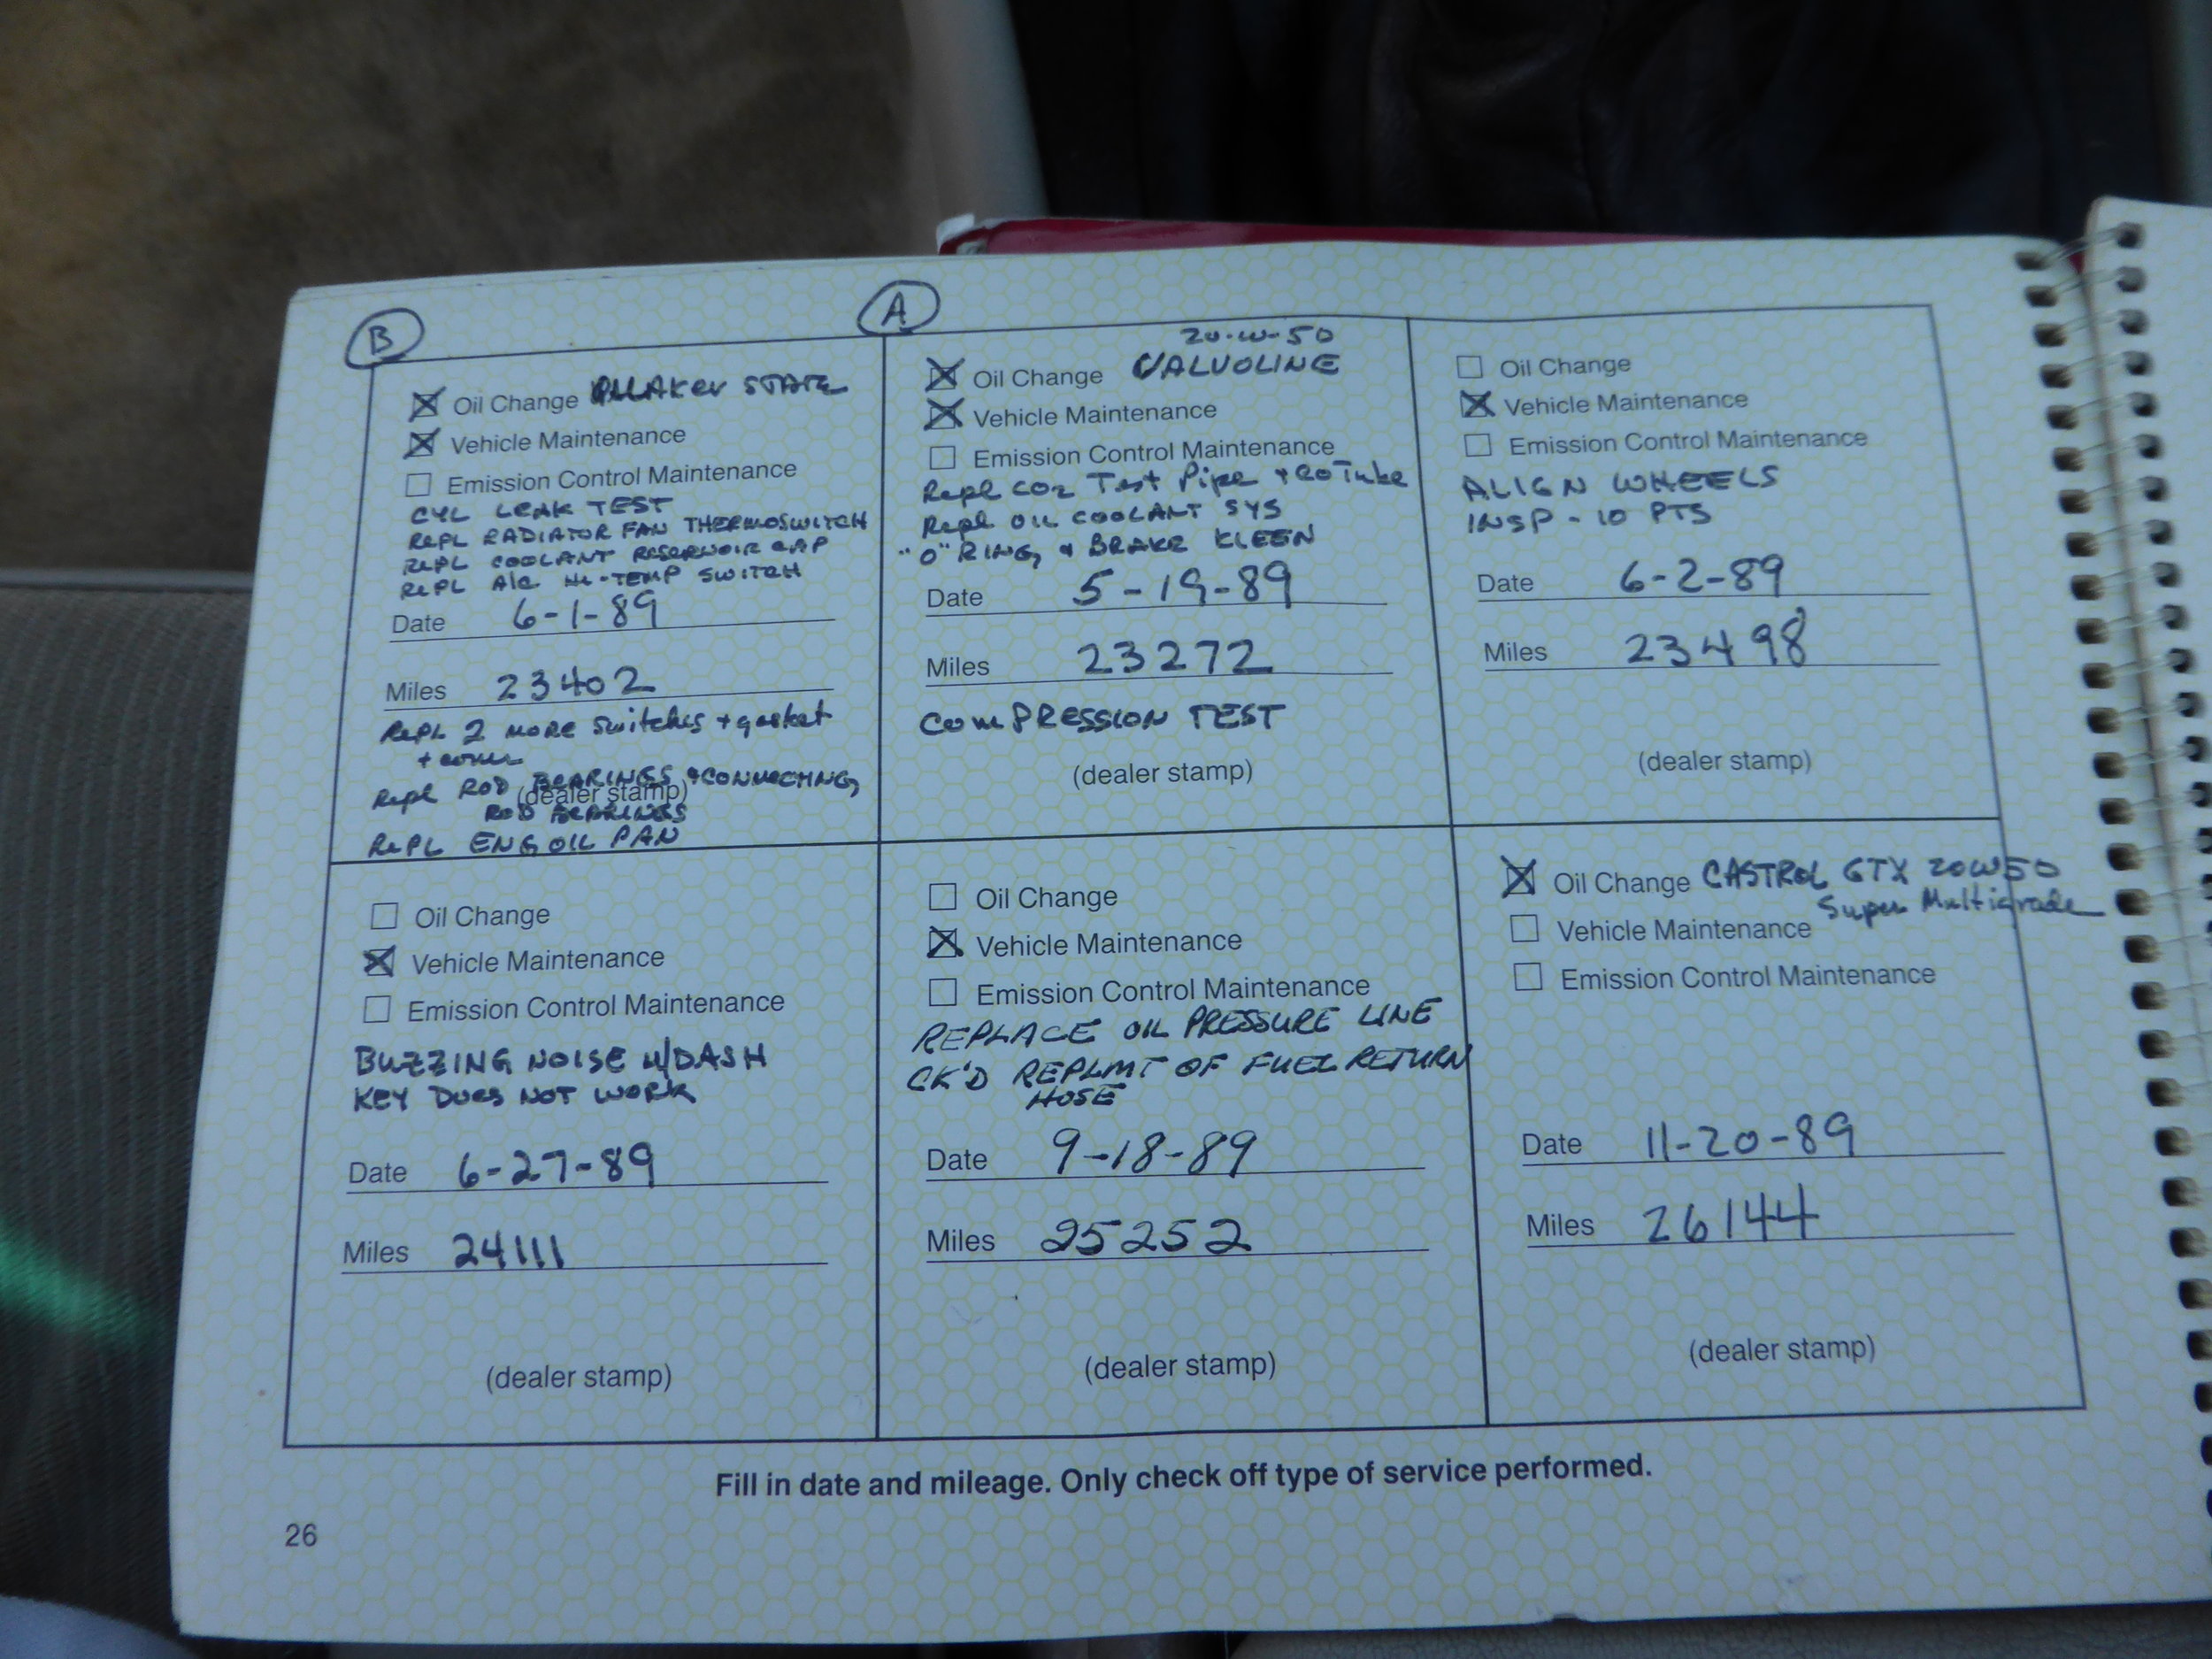 B
Oil Change QUAKER STATE
Vehicle Maintenance
Emission Control Maintenance
CYL LEAK TEST
REPL RADIATOR FAN THERMOSWITCH
REPL COOLANT RESERVOIR CAP
REPL A/C HI-TEMP SWITCH
Date 6-1-89
Miles 23402
REPL 2 MORE Switches + gasket
+ cover
Repl ROD BEARINGS + CONNECTING,
(dealer stamp)
ROD BEARINGS
REPL ENG OIL PAN
A
20-W-50
Oil Change VALVOLINE
Vehicle Maintenance
Emission Control Maintenance
Repl CO2 Test Pipe + CO Tube
Repl OIL COOLANT SYS
"O" RING, & BRAKE KLEEN
Date 5-19-89
Miles 23272
COMPRESSION TEST
(dealer stamp)
Oil Change
Vehicle Maintenance
Emission Control Maintenance
ALIGN WHEELS
INSP - 10 PTS
Date 6-2-89
Miles 23498
(dealer stamp)
Oil Change
Vehicle Maintenance
Emission Control Maintenance
BUZZING NOISE W/DASH
KEY DOES NOT WORK
Date 6-27-89
Miles 24111
(dealer stamp)
Oil Change
Vehicle Maintenance
Emission Control Maintenance
REPLACE OIL PRESSURE LINE
CK'D REPLMT OF FUEL RETURN
HOSE
Date 9-18-89
Miles 25252
(dealer stamp)
Oil Change CASTROL GTX 20W50
Super Multigrade
Vehicle Maintenance
Emission Control Maintenance
Date 11-20-89
Miles 26144
(dealer stamp)
Fill in date and mileage. Only check off type of service performed.
26